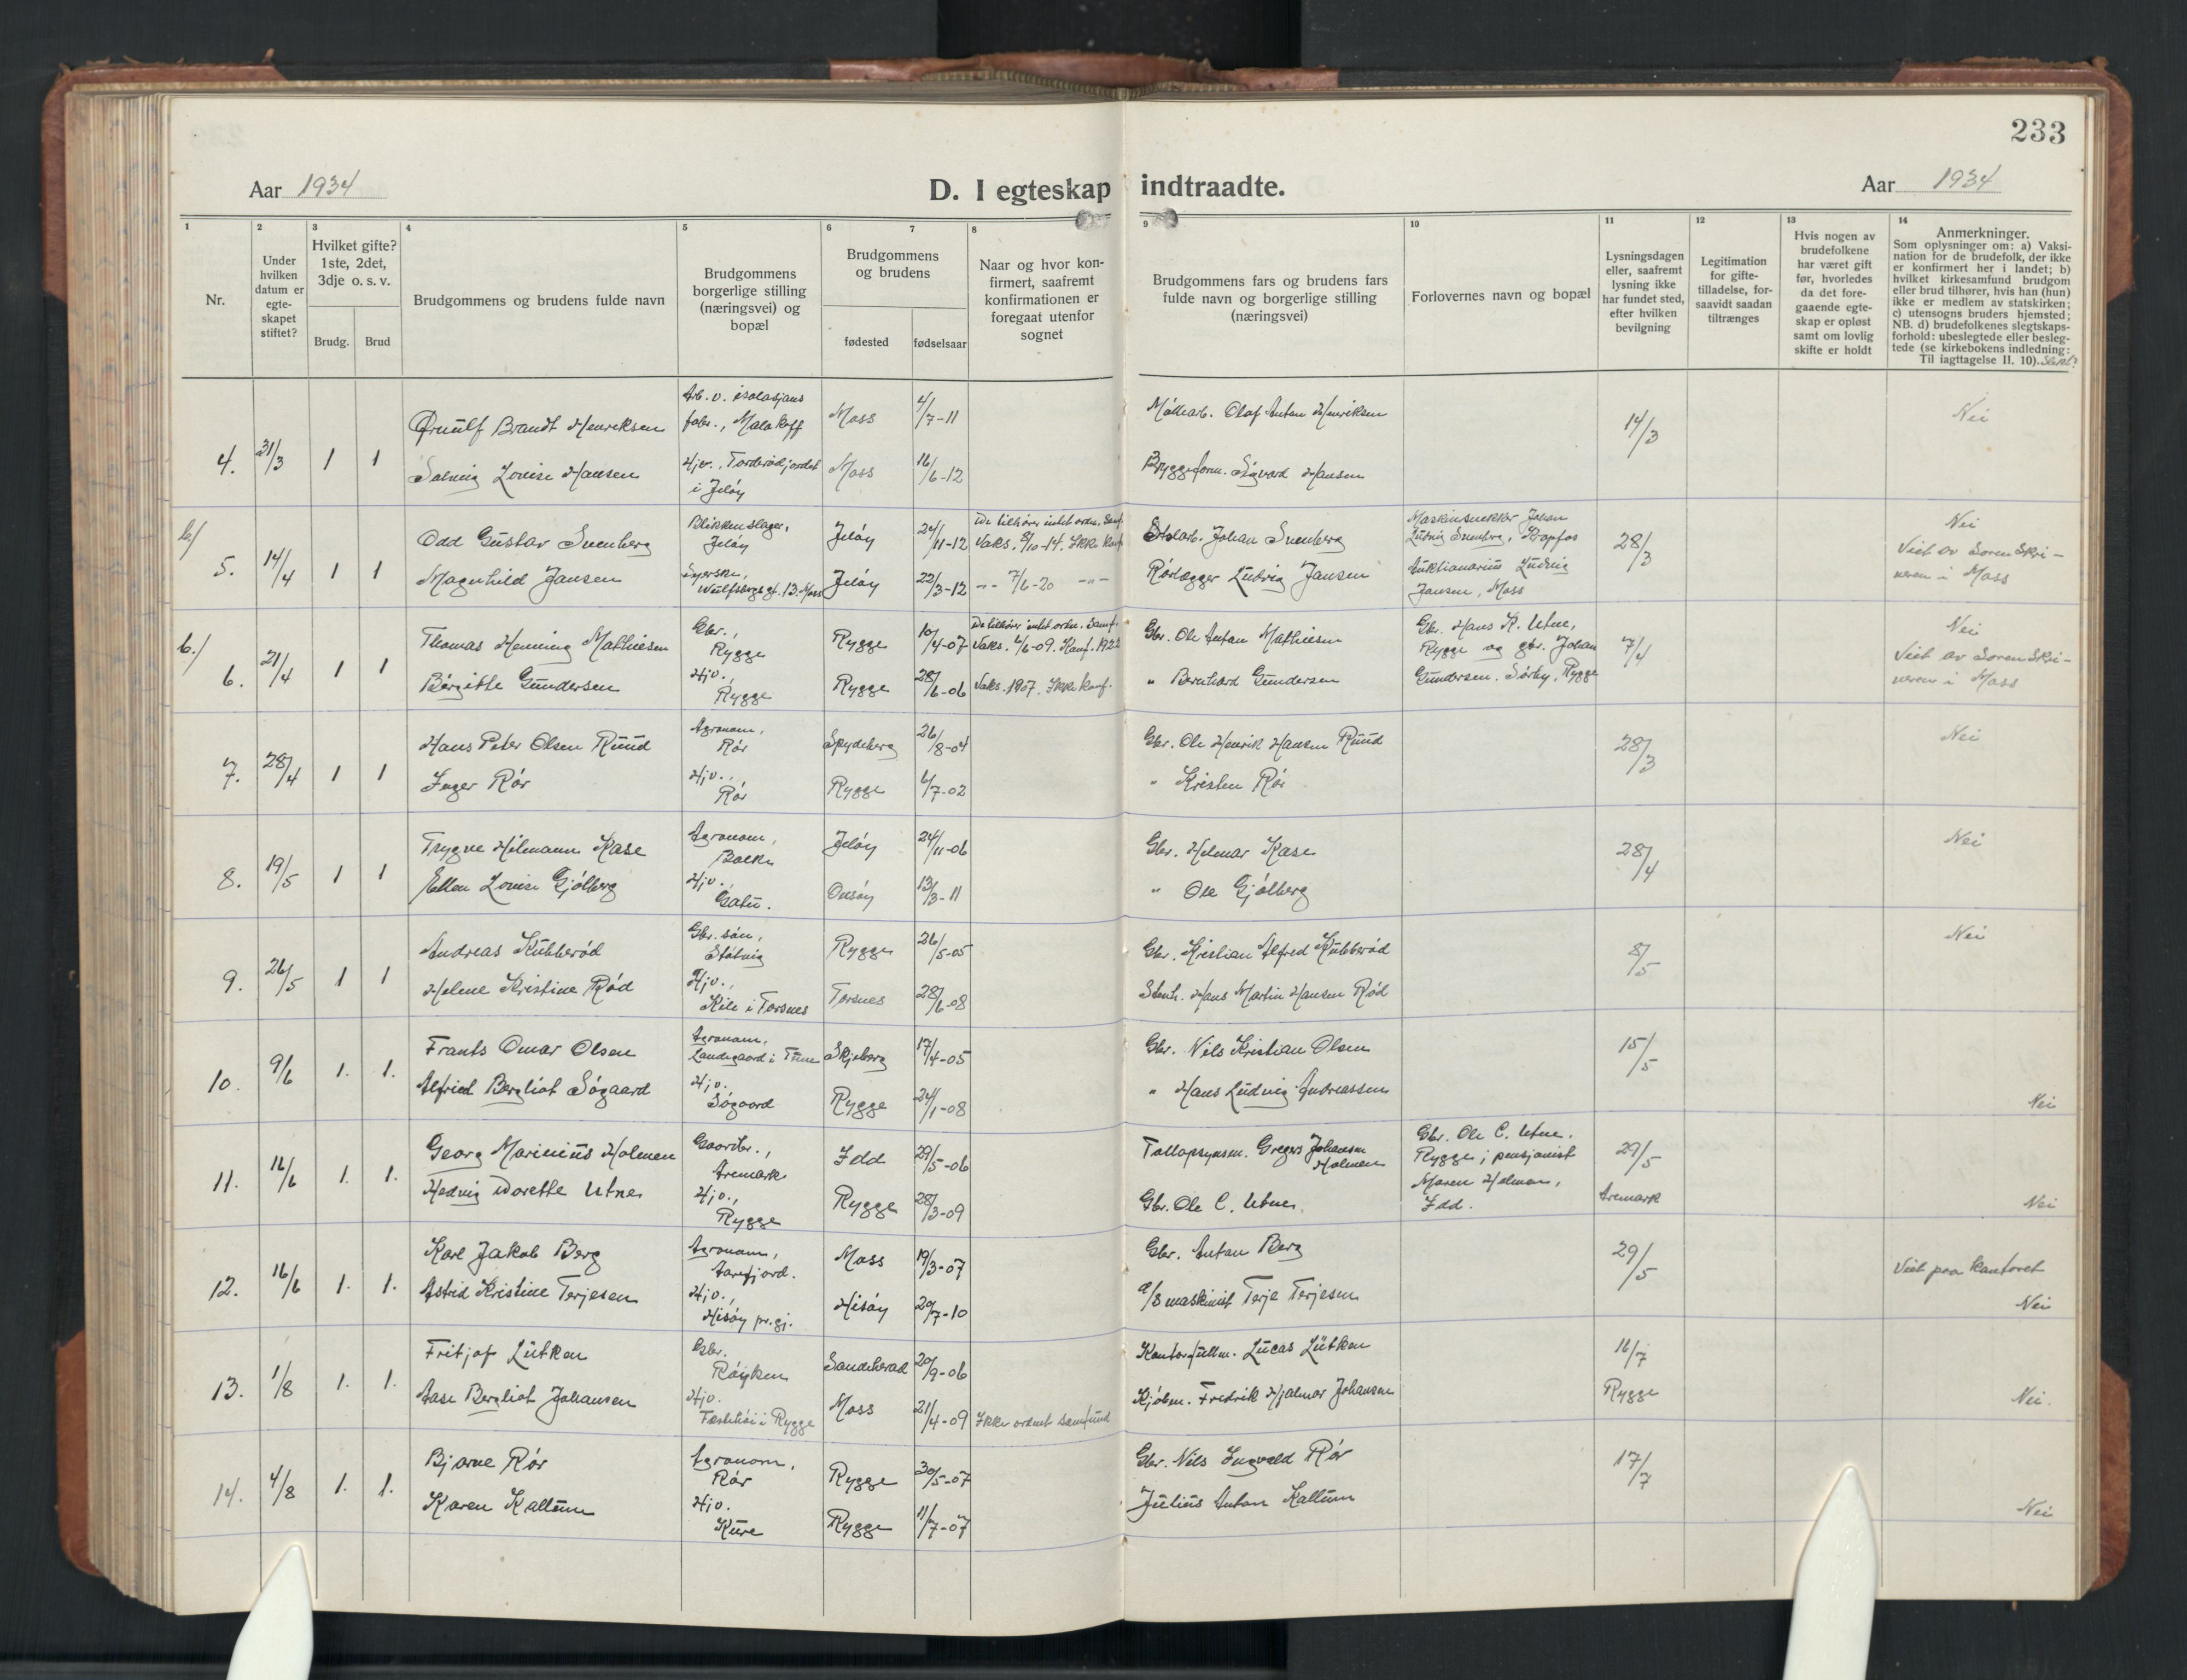 233
Aar 1934
D. I egteskap indtraadte.
Aar 1934
1
2
3
4
5
6
7
8
9
10
11
12
13
14
Nr.
Under
hvilken
datum er
egte-
skapet
stiftet?
Hvilket gifte?
1ste, 2det,
3dje o. s. v.
Brudg.
Brud
Brudgommens og brudens fulde navn
Brudgommens
borgerlige stilling
(næringsvei) og
bopæl
Brudgommens
og brudens
fødested
fødselsaar
Naar og hvor kon-
firmert, saafremt
konfirmationen er
foregaat utenfor
sognet
Brudgommens fars og brudens fars
fulde navn og borgerlige stilling
(næringsvei)
Forlovernes navn og bopæl
Lysningsdagen
eller, saafremt
lysning ikke
har fundet sted,
efter hvilken
bevilgning
Legitimation
for gifte-
tilladelse, for-
saavidt saadan
tiltrænges
Hvis nogen av
brudefolkene
har været gift
før, hvorledes
da det fore-
gaaende egte-
skap er opløst
samt om lovlig
skifte er holdt
Anmerkninger.
Som oplysninger om: a) Vaksi-
nation for de brudefolk, der ikke
er konfirmert her i landet; b)
hvilket kirkesamfund brudgom
eller brud tilhører, hvis han (hun)
ikke er medlem av statskirken;
c) utensogns bruders hjemsted;
NB. d) brudefolkenes slegtskaps-
forhold: ubeslegtede eller besleg-
tede (se kirkebokens indledning:
Til iagttagelse II. 10). Slekt?
4. 31/3 1 1
Ørnulf Brandt Henriksen
Arb. v. isolasjons
fabr., Malakoff
Moss 4/7-11
Møllearb. Olaf Anton Henriksen
14/3
Nei
Solveig Louise Hansen
Hjv., Torderødjordet
i Jeløy
Moss 16/6-12
Bryggeform. Sigvard Hansen
b/
5. 14/4 1 1
Odd Gustav Svenberg
Blikkenslager,
Jeløy
Jeløy 24/11-12
De tilhører intet ordn. Samf.
Vaks. 8/10-14. Ikke konf
Johan Svenberg
Johan
Ludvig Svenberg, Krapfos
28/3
Nei
Viet av Sorenskri-
veren i Moss
Magnhild Jansen
Syerske,
Wulfsbergs gt. 13. Moss
Jeløy 22/3-12
-"- 7/6-20 -"-
Rørlægger Ludvig Jansen
Auktionarius Ludvig
Jansen, Moss
b./
6. 21/4 1 1
Thomas Henning Mathiesen
Gbr.,
Rygge
Rygge 10/4-07
De tilhører intet ordn. Samf.
Vaks. 6/6-09. Konf. 1922
Gbr. Ole Anton Mathiesen
Gbr. Hans K. Utne,
Rygge og gbr. Johan
Gundersen. Sørby, Rygge
7/4
Nei
Viet av Sorenskri-
veren i Moss
Birgitte Gundersen
Hjv.,
Rygge
Rygge 28/6-06
Vaks. 1907. Ikke konf.
" Bernhard Gundersen
7. 28/4 1 1
Hans Peter Olsen Ruud
Agronom,
Rør
Spydeberg 26/8-04
Gbr. Ole Henrik Hansen Ruud
28/3
Nei
Inger Rør
Hjv.,
Rør
Rygge 6/7-02
" Kristen Rør
8. 19/5 1 1
Trygve Hilmann Kase
Agronom,
Jeløy 24/11-06
Gbr. Helmar Kase
28/4
Nei
Ellen Louise Gjølberg
Hjv.,
Gatu.
Onsøy 13/3-11
" Ole Gjølberg
9. 26/5 1 1
Andreas Kubberød
Gbr. søn,
Støtvig
Rygge 26/5-05
Gbr. Kristian Alfred Kubberød
8/5
Nei
Helene Kristine Rød
Hjv.,
Kile i Torsnes
Torsnes 28/6-08
Stenh. Hans Martin Hansen Rød
10. 9/6 1. 1.
Frants Omar Olsen
Agronom,
Landegaard i Tune
Skjeberg 17/4-05
Gbr. Nils Kristian Olsen
15/5
Alfried Bergliot Søgaard
Hjv.
Søgaard
Rygge 24/1-08
" Hans Ludvig Andreassen
Nei
11. 16/6 1. 1.
Georg Marinius Holmen
Gaardbr.,
Aremark
Idd 29/5-06
Tallopsynsm. Gregers Johansen
Holmen
Gbr. Ole C. Utne.
Rygge; pensjonist
Maren Holmen,
Idd.
29/5
Aremark
Hedvig Dorette Utne
Hjv.,
Rygge
Rygge 28/3-09
Gbr. Ole C. Utne.
Nei
12. 16/6 1. 1.
Karl Jakob Berg
Agronom,
Aarefjord.
Moss 19/3-07
Gbr. Anton Berg
29/5
Viet paa kontoret
Astrid Kristine Terjesen
Hjv.,
Hisøy pr. gj.
Hisøy 20/7-10
maskinist Terje Terjesen
Nei
13. 1/8 1. 1.
Fritjof Lütken
Gbr.
Røyken
Sandeherad 20/9-06
Kontorfullm. Lucas Lütken
16/7
Rygge
Aase Bergliot Johansen
Hjv.
i Rygge
Moss 21/4-09
Ikke ordnet samfund
Kjøbm. Fredrik Hjalmar Johansen
Nei.
14. 4/8 1. 1.
Bjarne Rør
Agronom,
Rør
Rygge 30/5-07
Gbr. Nils Ingvald Rør
17/7
Karen Kallum
Hjv.
Kure
Rygge 11/7-07
Julius Anton Kallum
Nei